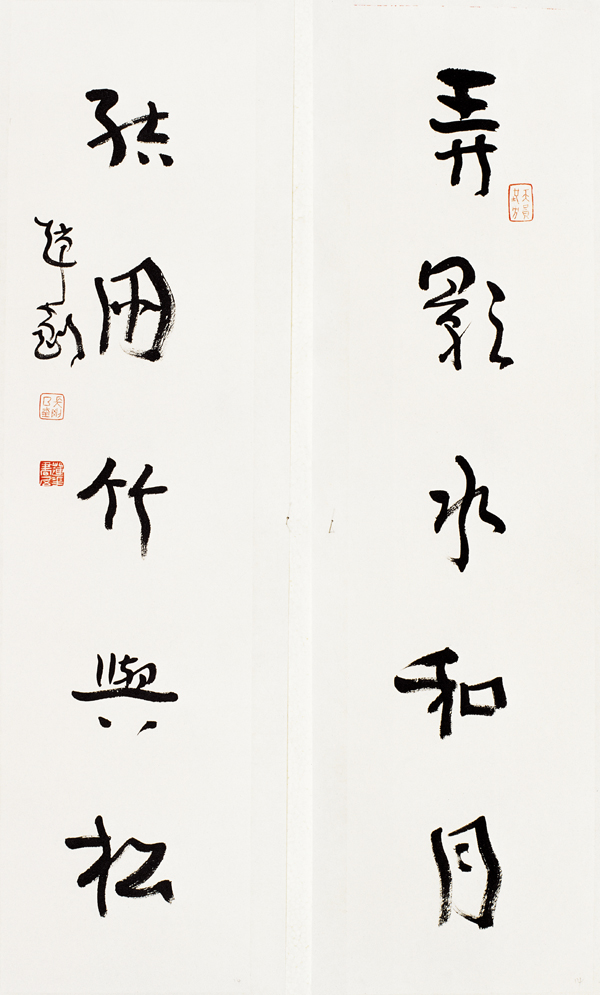 弄影水和月
結朋竹與松